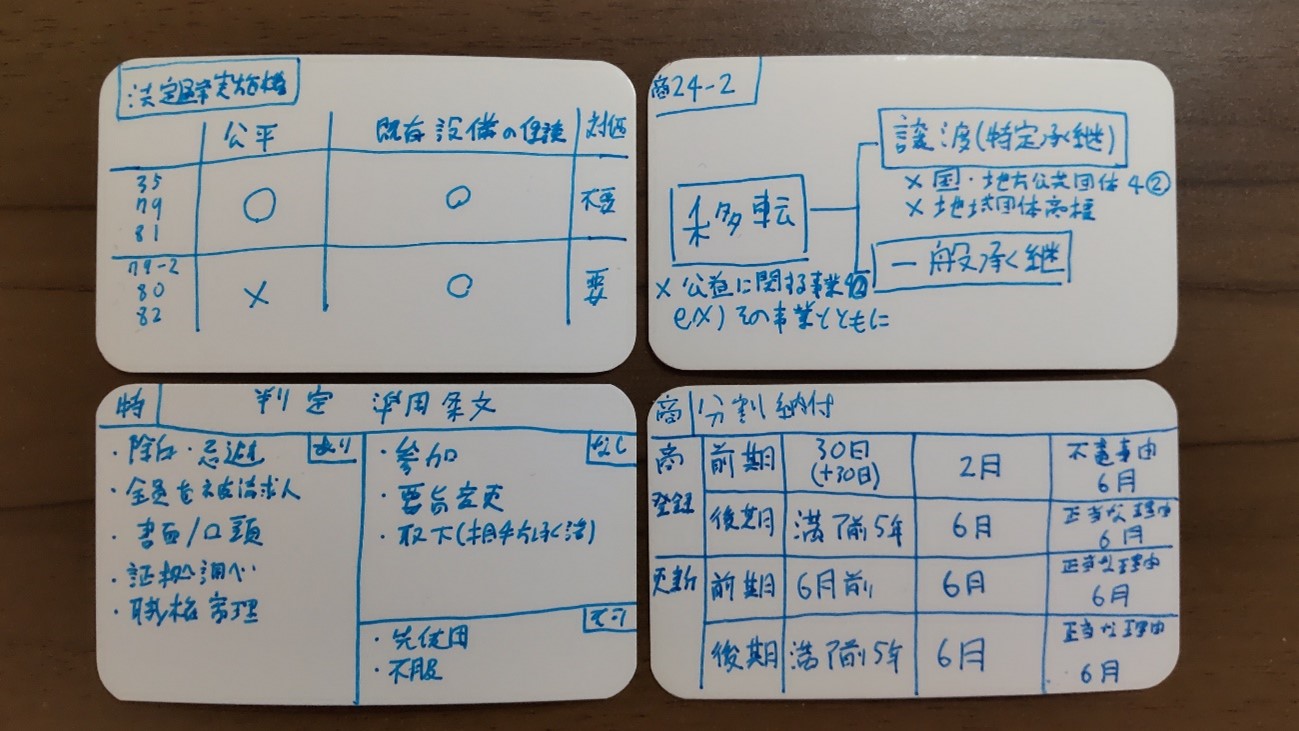 法定通常実施権
公平 既存設備の保護 対価
35
79
81
○ ○ 不要
79-2
80
82
× ○ 要
商24-2
移転
譲渡(特定承継)
× 国・地方公共団体 4②
× 地域団体商標
一般承継
× 公益に関する事業 4②
ex) その事業とともに
特 判定 準用条文
あり
・除斥・忌避
・全員を被請求人
・書面/口頭
・証拠調べ
・職権審理
なし
・参加
・要旨変更
・取下(相手方承諾)
・先使用
・不服
商 分割納付
商 登録 前期 30日 (+30日) 2月 不責事由 6月
後期 満了前5年 6月 正当な理由 6月
更新 前期 6月前 6月 正当な理由 6月
後期 満了前5年 6月 正当な理由 6月